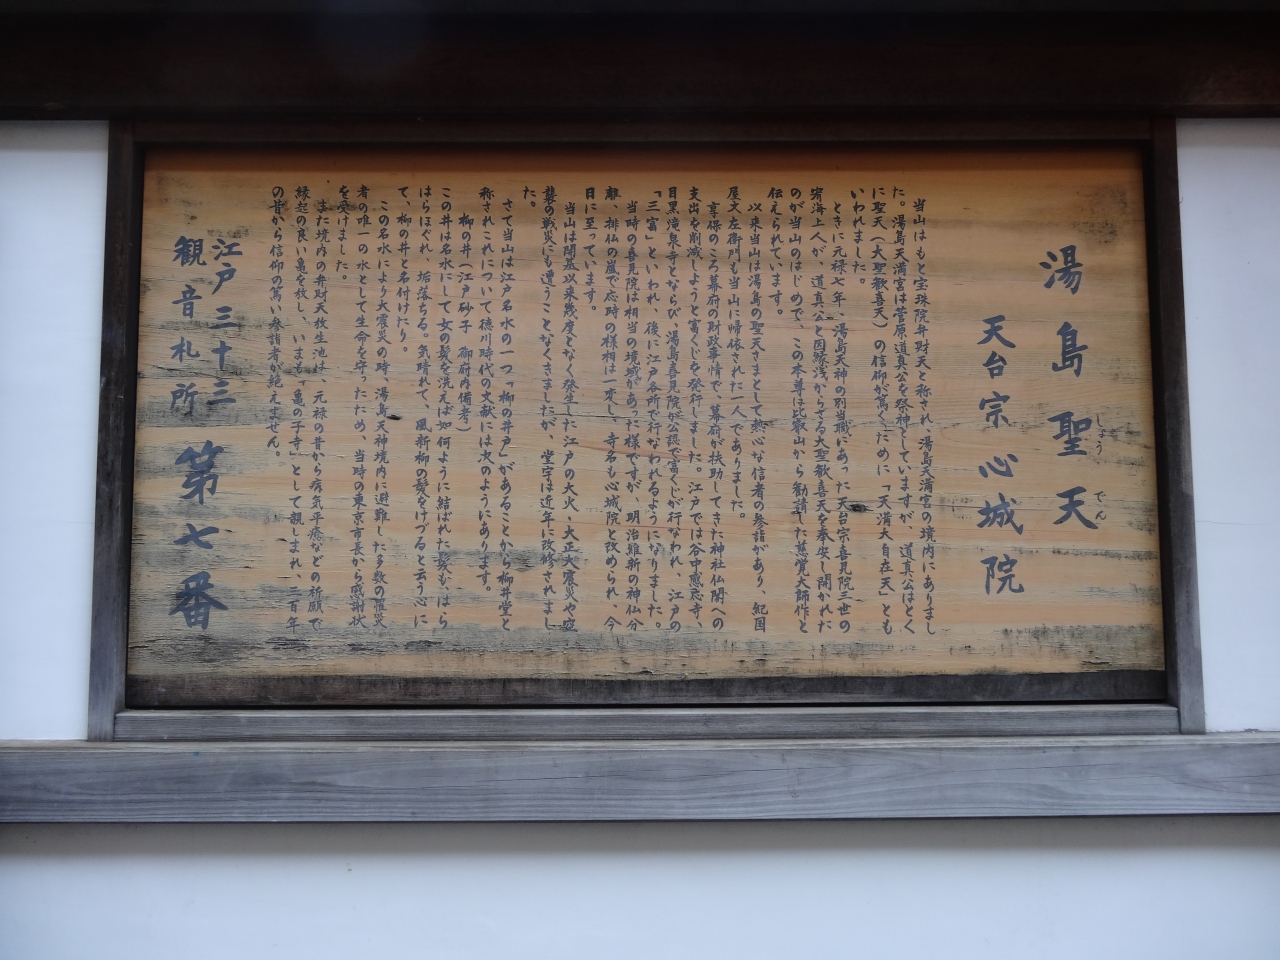 湯島聖天
しょう でん
天台宗 心城院
当山はもと宝珠院弁財天と称され、湯島天満宮の境内にありまし
た。湯島天満宮は菅原道真公を祭神としていますが、道真公はとく
に聖天(大聖歓喜天)の信仰が篤くために「天満大自在天」とも
いわれました。
ときに元禄七年、湯島天神の別当職にあった天台宗喜見院三世の
宥海上人が、道真公と因縁浅からざる大聖歓喜天を奉安し開かれた
のが当山のはじめで、この本尊は比叡山から勧請した慈覚大師作と
伝えられています。
以来当山は湯島の聖天さまとして熱心な信者の参詣があり、紀国
屋文左衛門も当山に帰依された一人でありました。
享保のころ幕府の財政事情で、幕府が扶助してきた神社仏閣への
支出を削減しようと富くじを発行しました。江戸では谷中感応寺、
目黒滝泉寺とならび、湯島喜見院が公認で富くじが行なわれ、江戸の
「三富」といわれ、後に江戸各所で行なわれるようになりました。
当時の喜見院は相当の境域があった様ですが、明治維新の神仏分
離、排仏の嵐で忘時の様相は一変し、寺名も心城院と改められ、今
日に至っています。
当山は開基以来幾度となく発生した江戸の大火、大正大震災や空
襲の戦災にも遭うことなくきましたが、堂宇は近年に改修されまし
た。
さて当山は江戸名水の一つ「柳の井戸」があることから柳井堂と
称されこれについて徳川時代の文献には次のようにあります。
柳の井(江戸砂子 御府内備考)
この井は名水にして女の髪を洗えば如何ように結ばれた髪も、はら
はらほぐれ、垢落ちる。気晴れて、風新柳の髪をけづると云う心に
て、柳の井と名付けたり。
この名水により大震災の時、湯島天神境内に避難した多数の罹災
者の唯一の水として生命を守ったため、当時の東京市長から感謝状
を受けました。
また境内の弁財天放生池は、元禄の昔から病気平癒などの祈願で
縁起の良い亀を放し、いまも「亀の子寺」として親しまれ、三百年
の昔から信仰の篤い参詣者が絶えません。
江戸三十三
観音札所 第七番